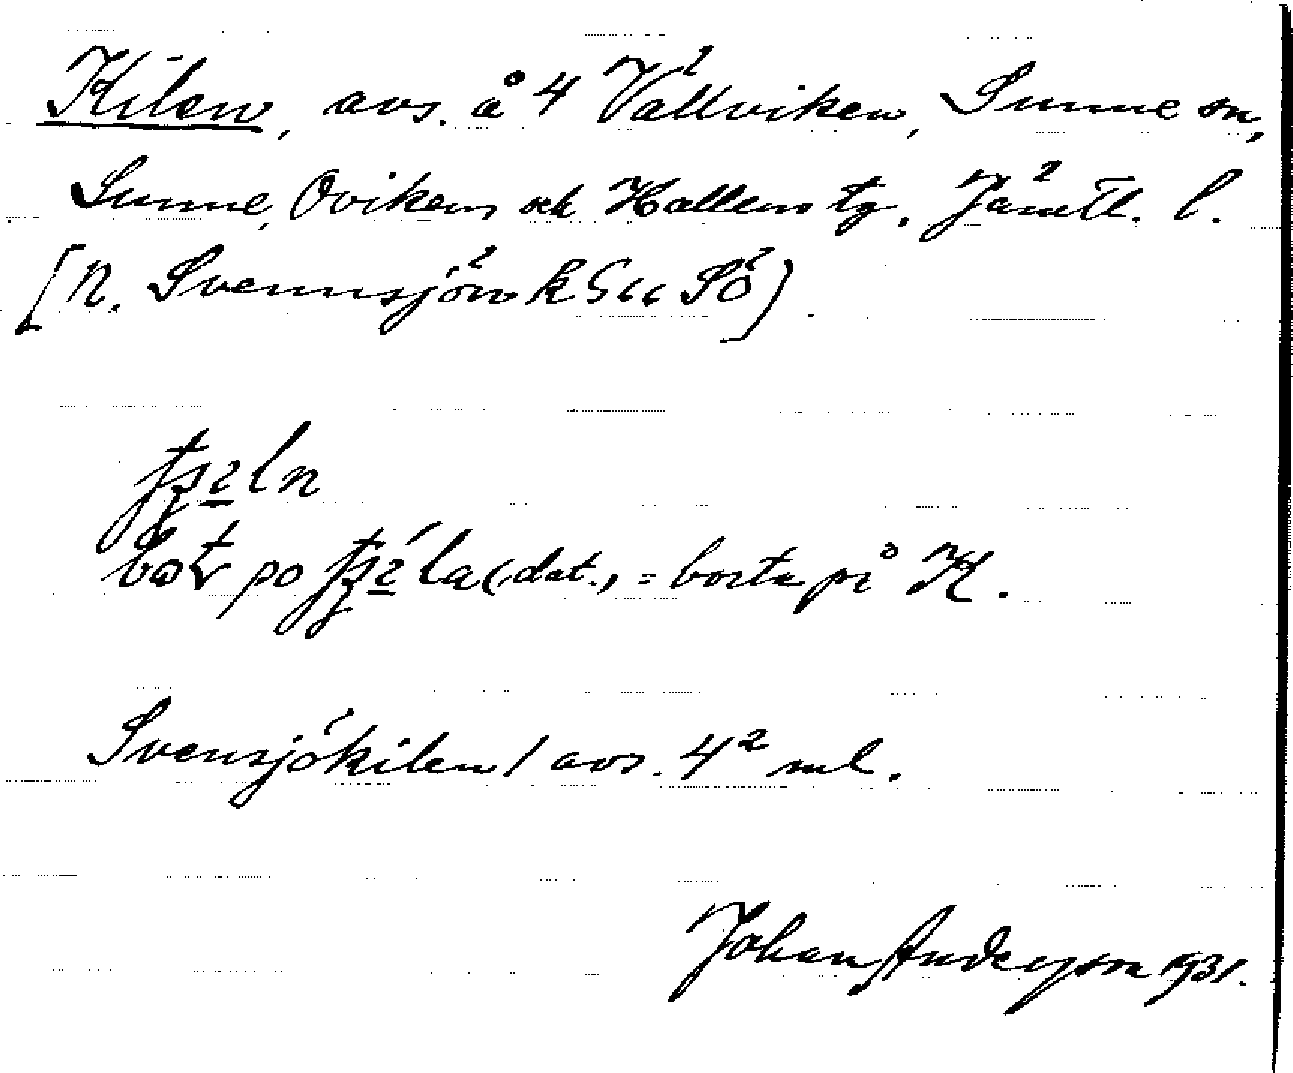 Kilen, avs. å 4 Vällviken, Sunne sn,
Sunne, Oviken och Hallens tg. Jämtl. l.
[N. Svennsjön k 566 SÖ].
bot po (dat.) = borta på K.
Svensjökilen / avs. 4² ml.
Johan Anderson 1931.